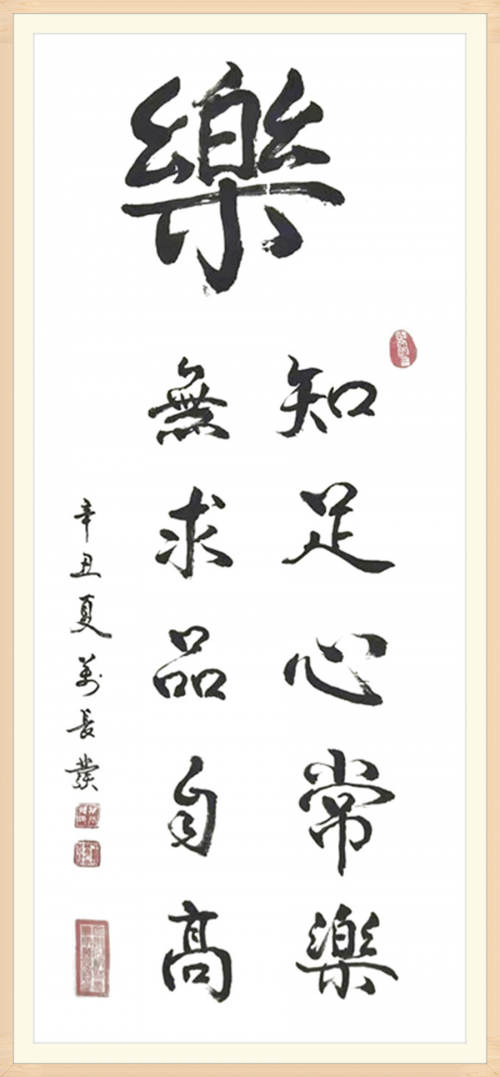 樂
知足心常樂
無求品自高
辛丑夏萬長業